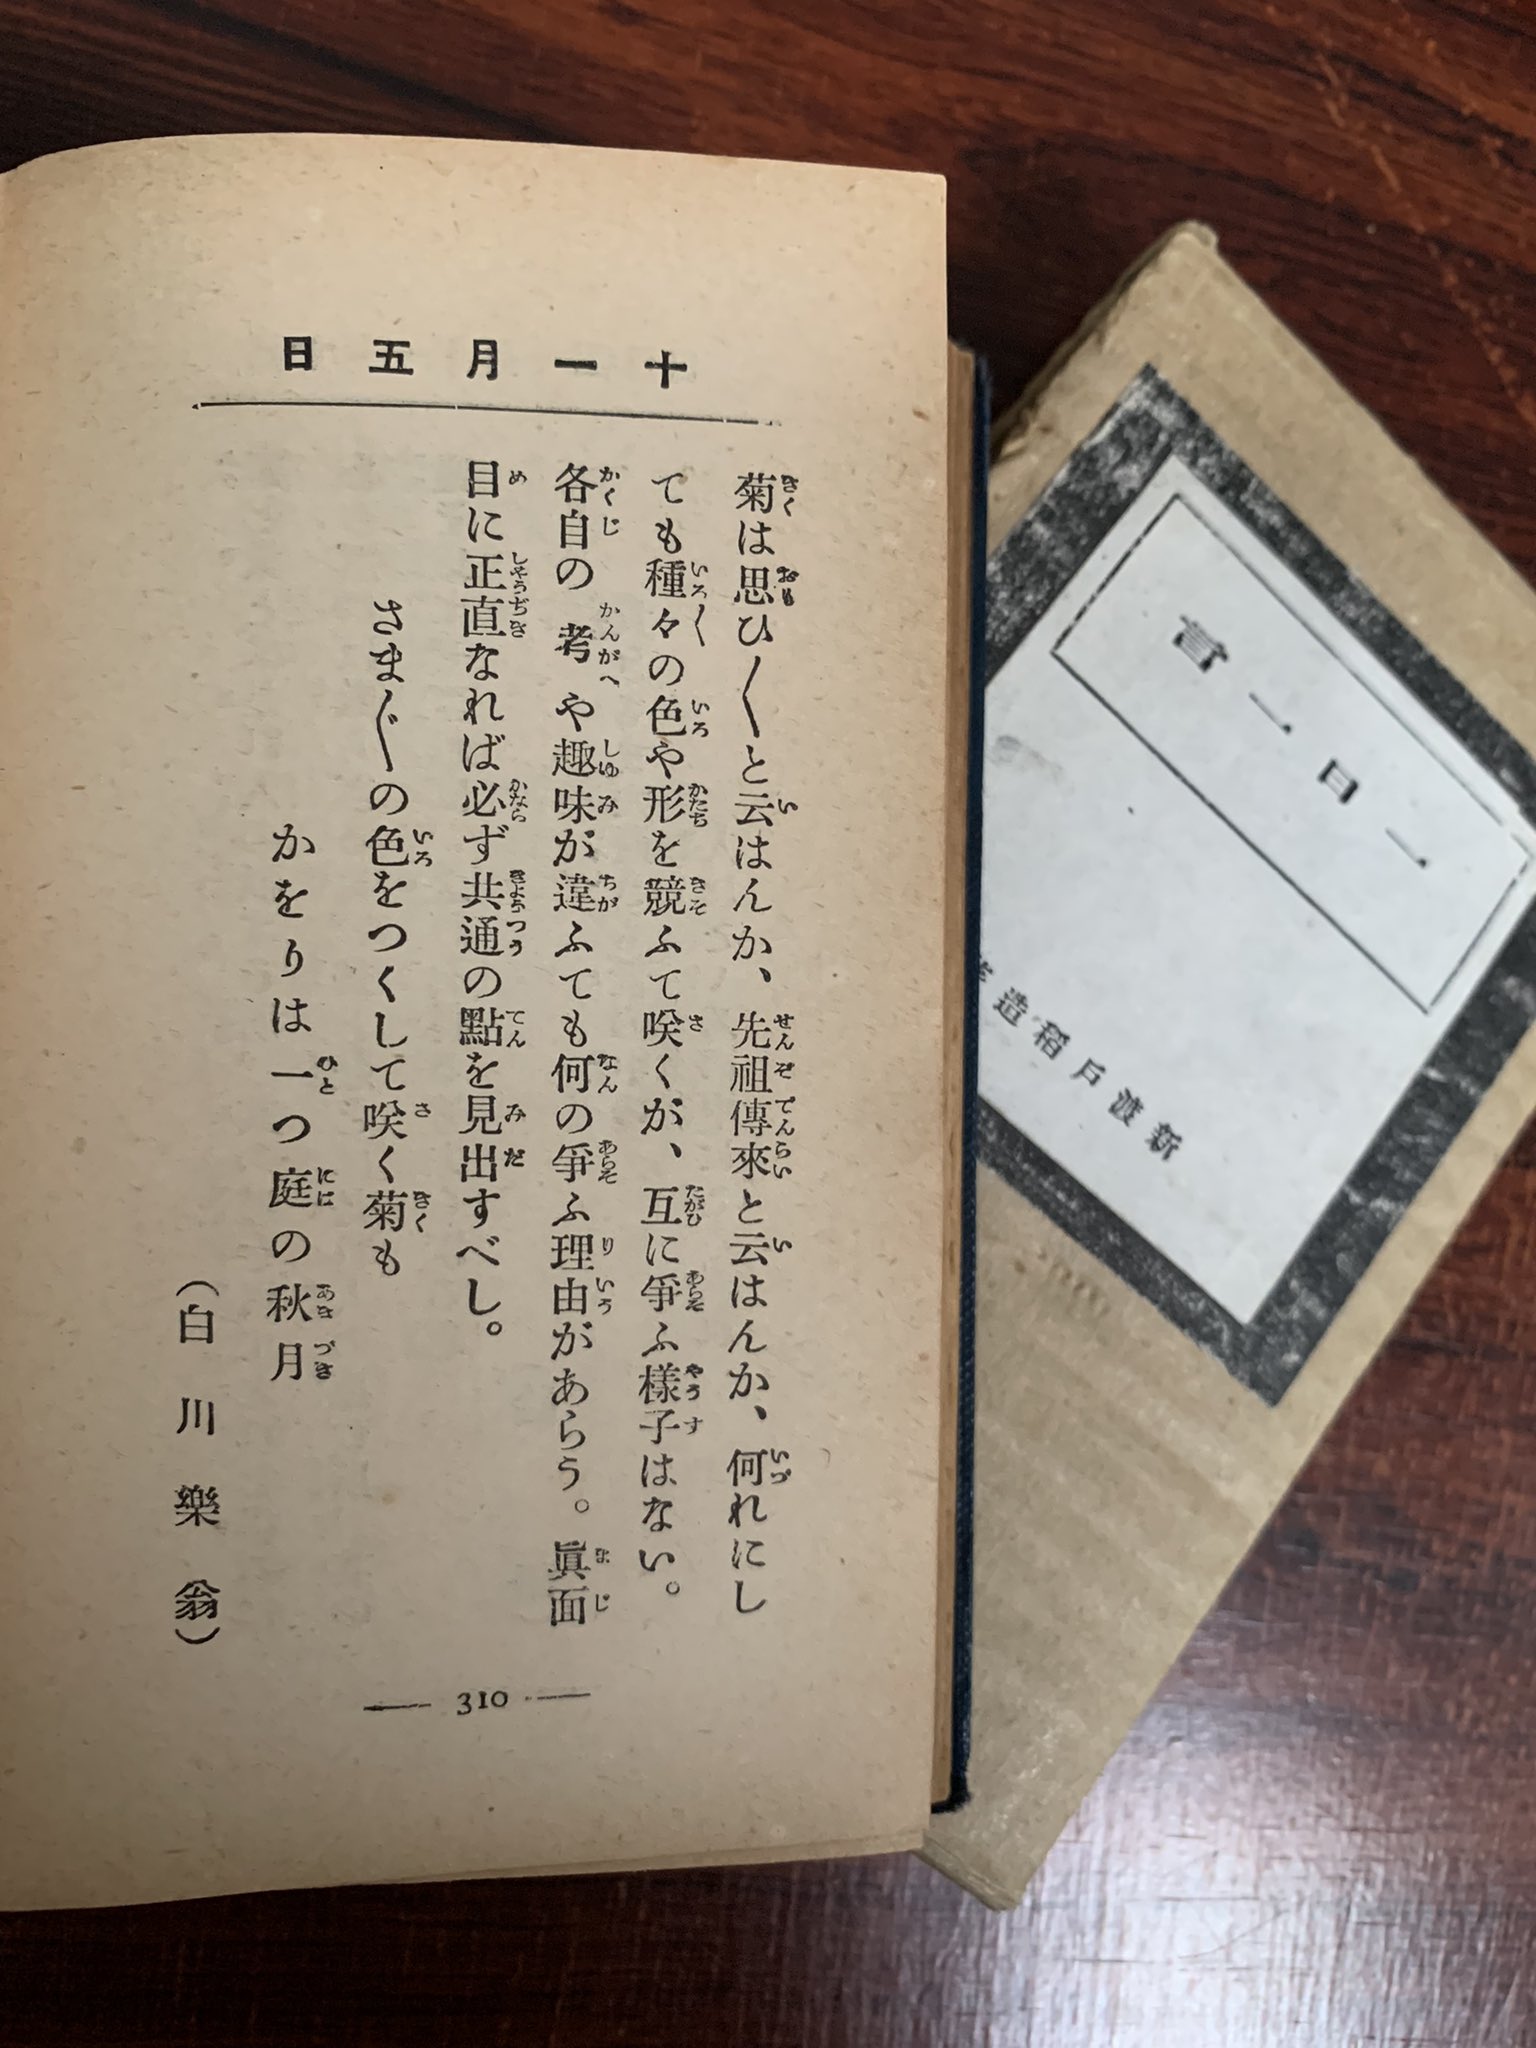 十一月五日
菊は思ひ〱と云はんか、先祖傳來と云はんか、何れにし
ても種々の色や形を競ふて咲くが、互に爭ふ樣子はない。
各自の考や趣味が違ふても何の爭ふ理由があらう。眞面
目に正直なれば必ず共通の點を見出すべし。
さま〴〵の色をつくして咲く菊も
かをりは一つ庭の秋月
（白川樂翁）
— 310 —
一日一言
新渡戶稻造